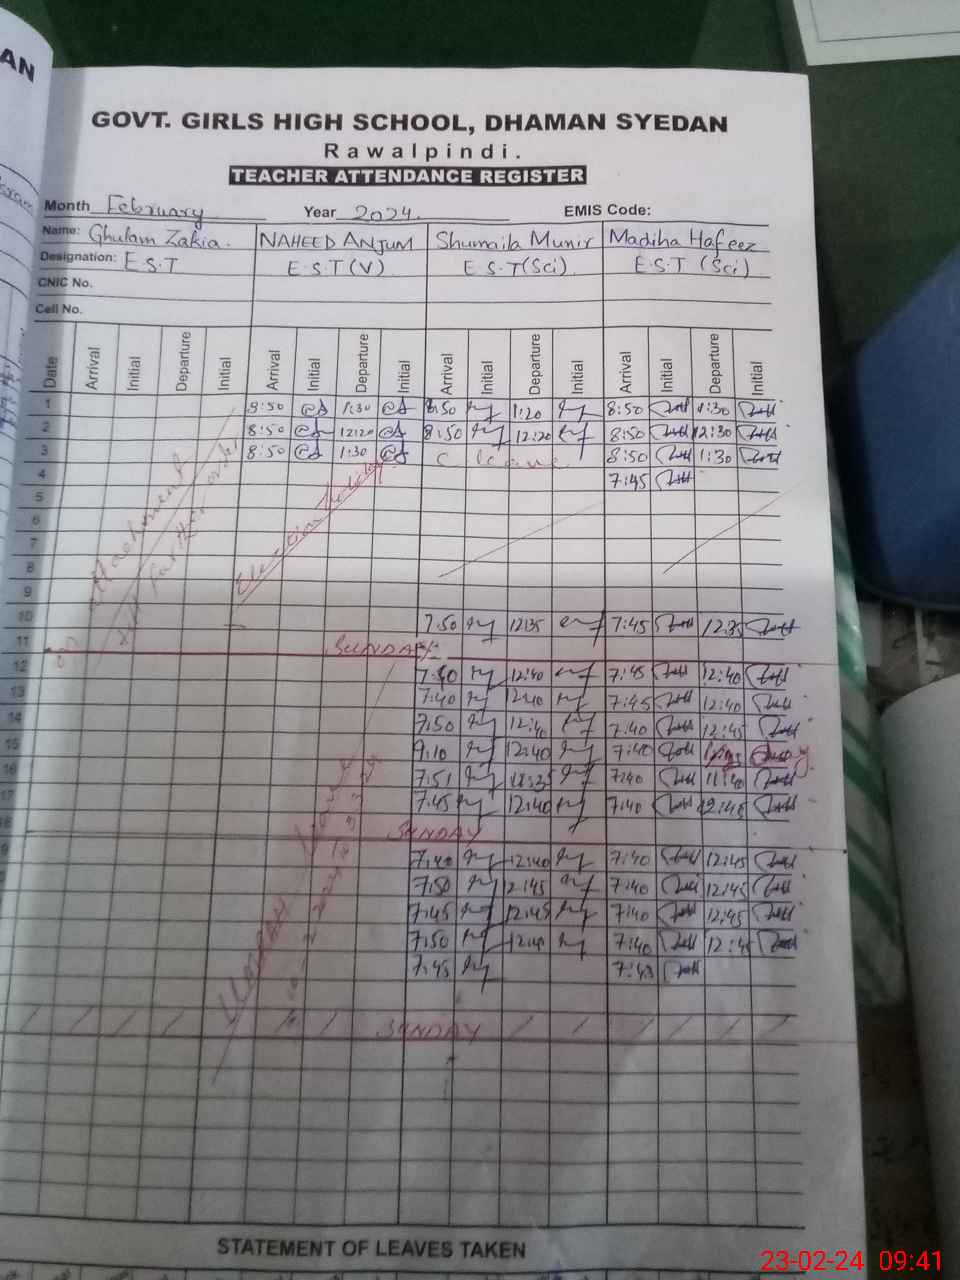 AN
GOVT. GIRLS HIGH SCHOOL, DHAMAN SYEDAN
Rawalpindi.
TEACHER ATTENDANCE REGISTER
Month February Year 2024. EMIS Code:
Name: Ghulam Zakia. NAHEED ANJUM Shumaila Munir Madiha Hafeez
Designation: E.S.T E.S.T (V) E.S.T (Sci) E.S.T (Sci)
CNIC No.
Cell No.
Date Arrival Initial Departure Initial Arrival Initial Departure Initial Arrival Initial Departure Initial Arrival Initial Departure Initial
1 8:50 1:30 8:50 1:20 8:50 1:30
2 8:50 12:20 8:50 12:20 8:50 12:30
3 8:50 1:30 C leave 8:50 1:30
4 7:45
5
6
7
8
9
10 7:50 12:35 7:45 12:35
11 SUNDAY
12 7:40 12:40 7:45 12:40
13 7:40 12:40 7:45 12:40
14 7:50 12:40 7:40 12:45
15 9:10 12:40 7:40
16 7:51 7:40 11:40
17 7:45 12:40 7:40 12:45
18 SUNDAY
9 7:40 12:40 7:40 12:45
7:50 12:45 7:40 12:45
7:45 12:45 7:40 12:45
7:50 7:40
7:45 7:43
SUNDAY
attachment
till further order
Election holiday
leave
STATEMENT OF LEAVES TAKEN
23-02-24 09:41